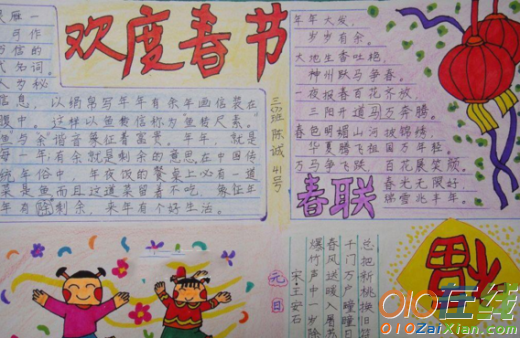 欢度春节
雁一
可作
万信的
代知词。
人岁秘
信息，以绢帛写年年有余年画信装在
腹中。这样以鱼传信称为鱼传尺素。
鱼与余谐音象征着富贵。年年，就是
每一年，有余就是剩余的意思，在中国传
统年俗中，年夜饭的餐桌上必有一道
菜是鱼而且这道菜留着不吃。象征年
年有剩余，来年有个好生活。
三(2)班 陈诚 41号
年年大发，
岁岁有余。
大地生香吐艳，
神州跃马争春。
一夜报春百花齐放，
三阳开道马万奔腾。
春色明媚山河披锦绣，
华夏腾飞祖国万年轻。
万马争飞跃，百花展笑颜。
春光无限好
瑞雪兆丰年。
春联
元日
宋·王安石
爆竹声中一岁除
春风送暖
千门万户曈曈日
总把新桃换旧符
福
010在线
010ZaiXian.com